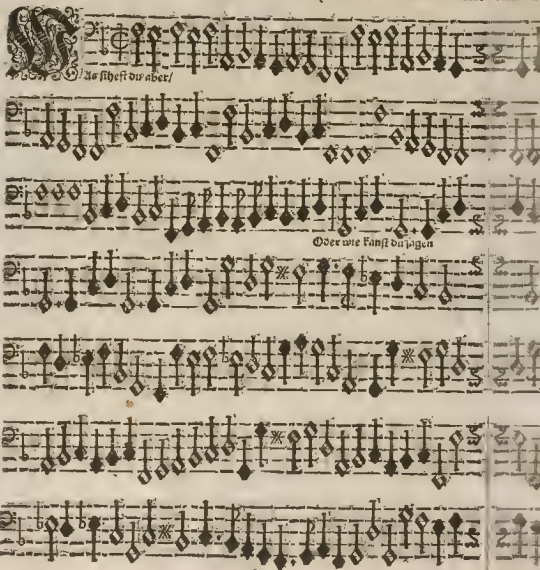 WAs sihest du aber/
Oder wie kanst du sagen